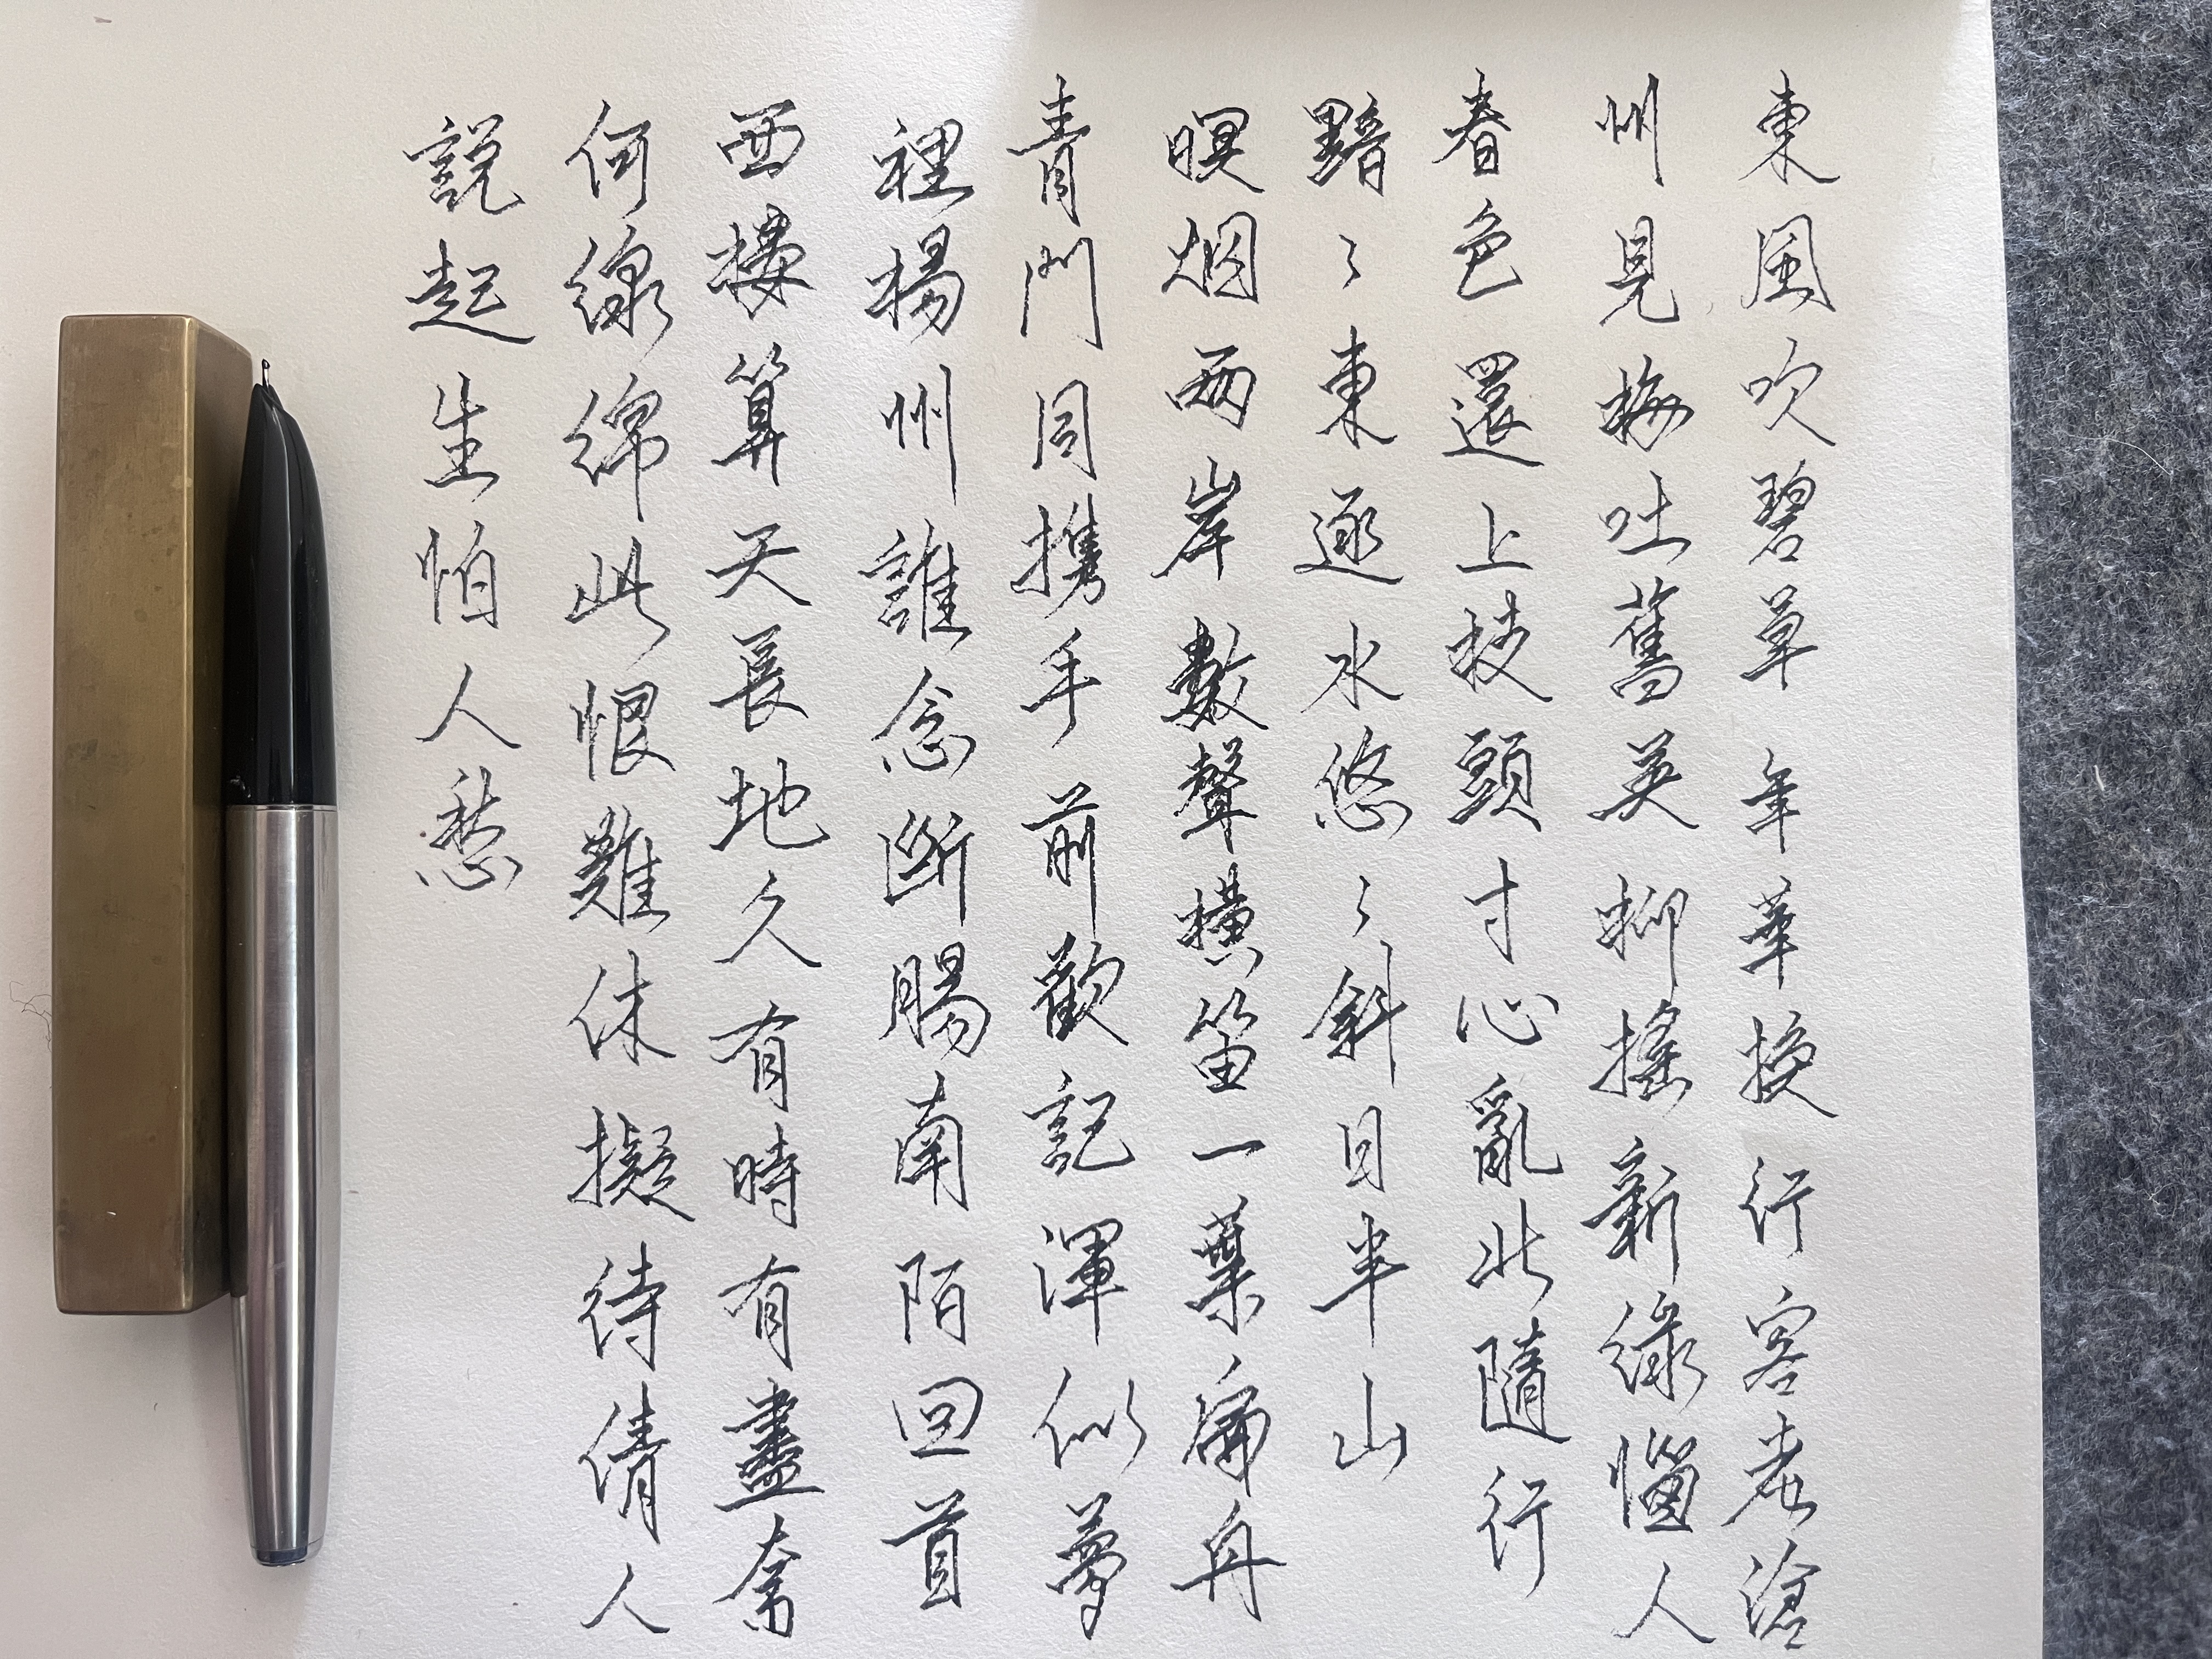 東風吹碧草年華換行客老滄
州見梅吐舊英柳搖新綠惱人
春色還上枝頭寸心亂北隨行
黯〻東逐水悠〻斜日半山
暝烟兩岸數聲橫笛一葉扁舟
青門同携手前歡記渾似夢
裡揚州誰念断腸南陌回首
西樓算天長地久有時有盡奈
何綿綿此恨難休擬待倩人
說起生怕人愁